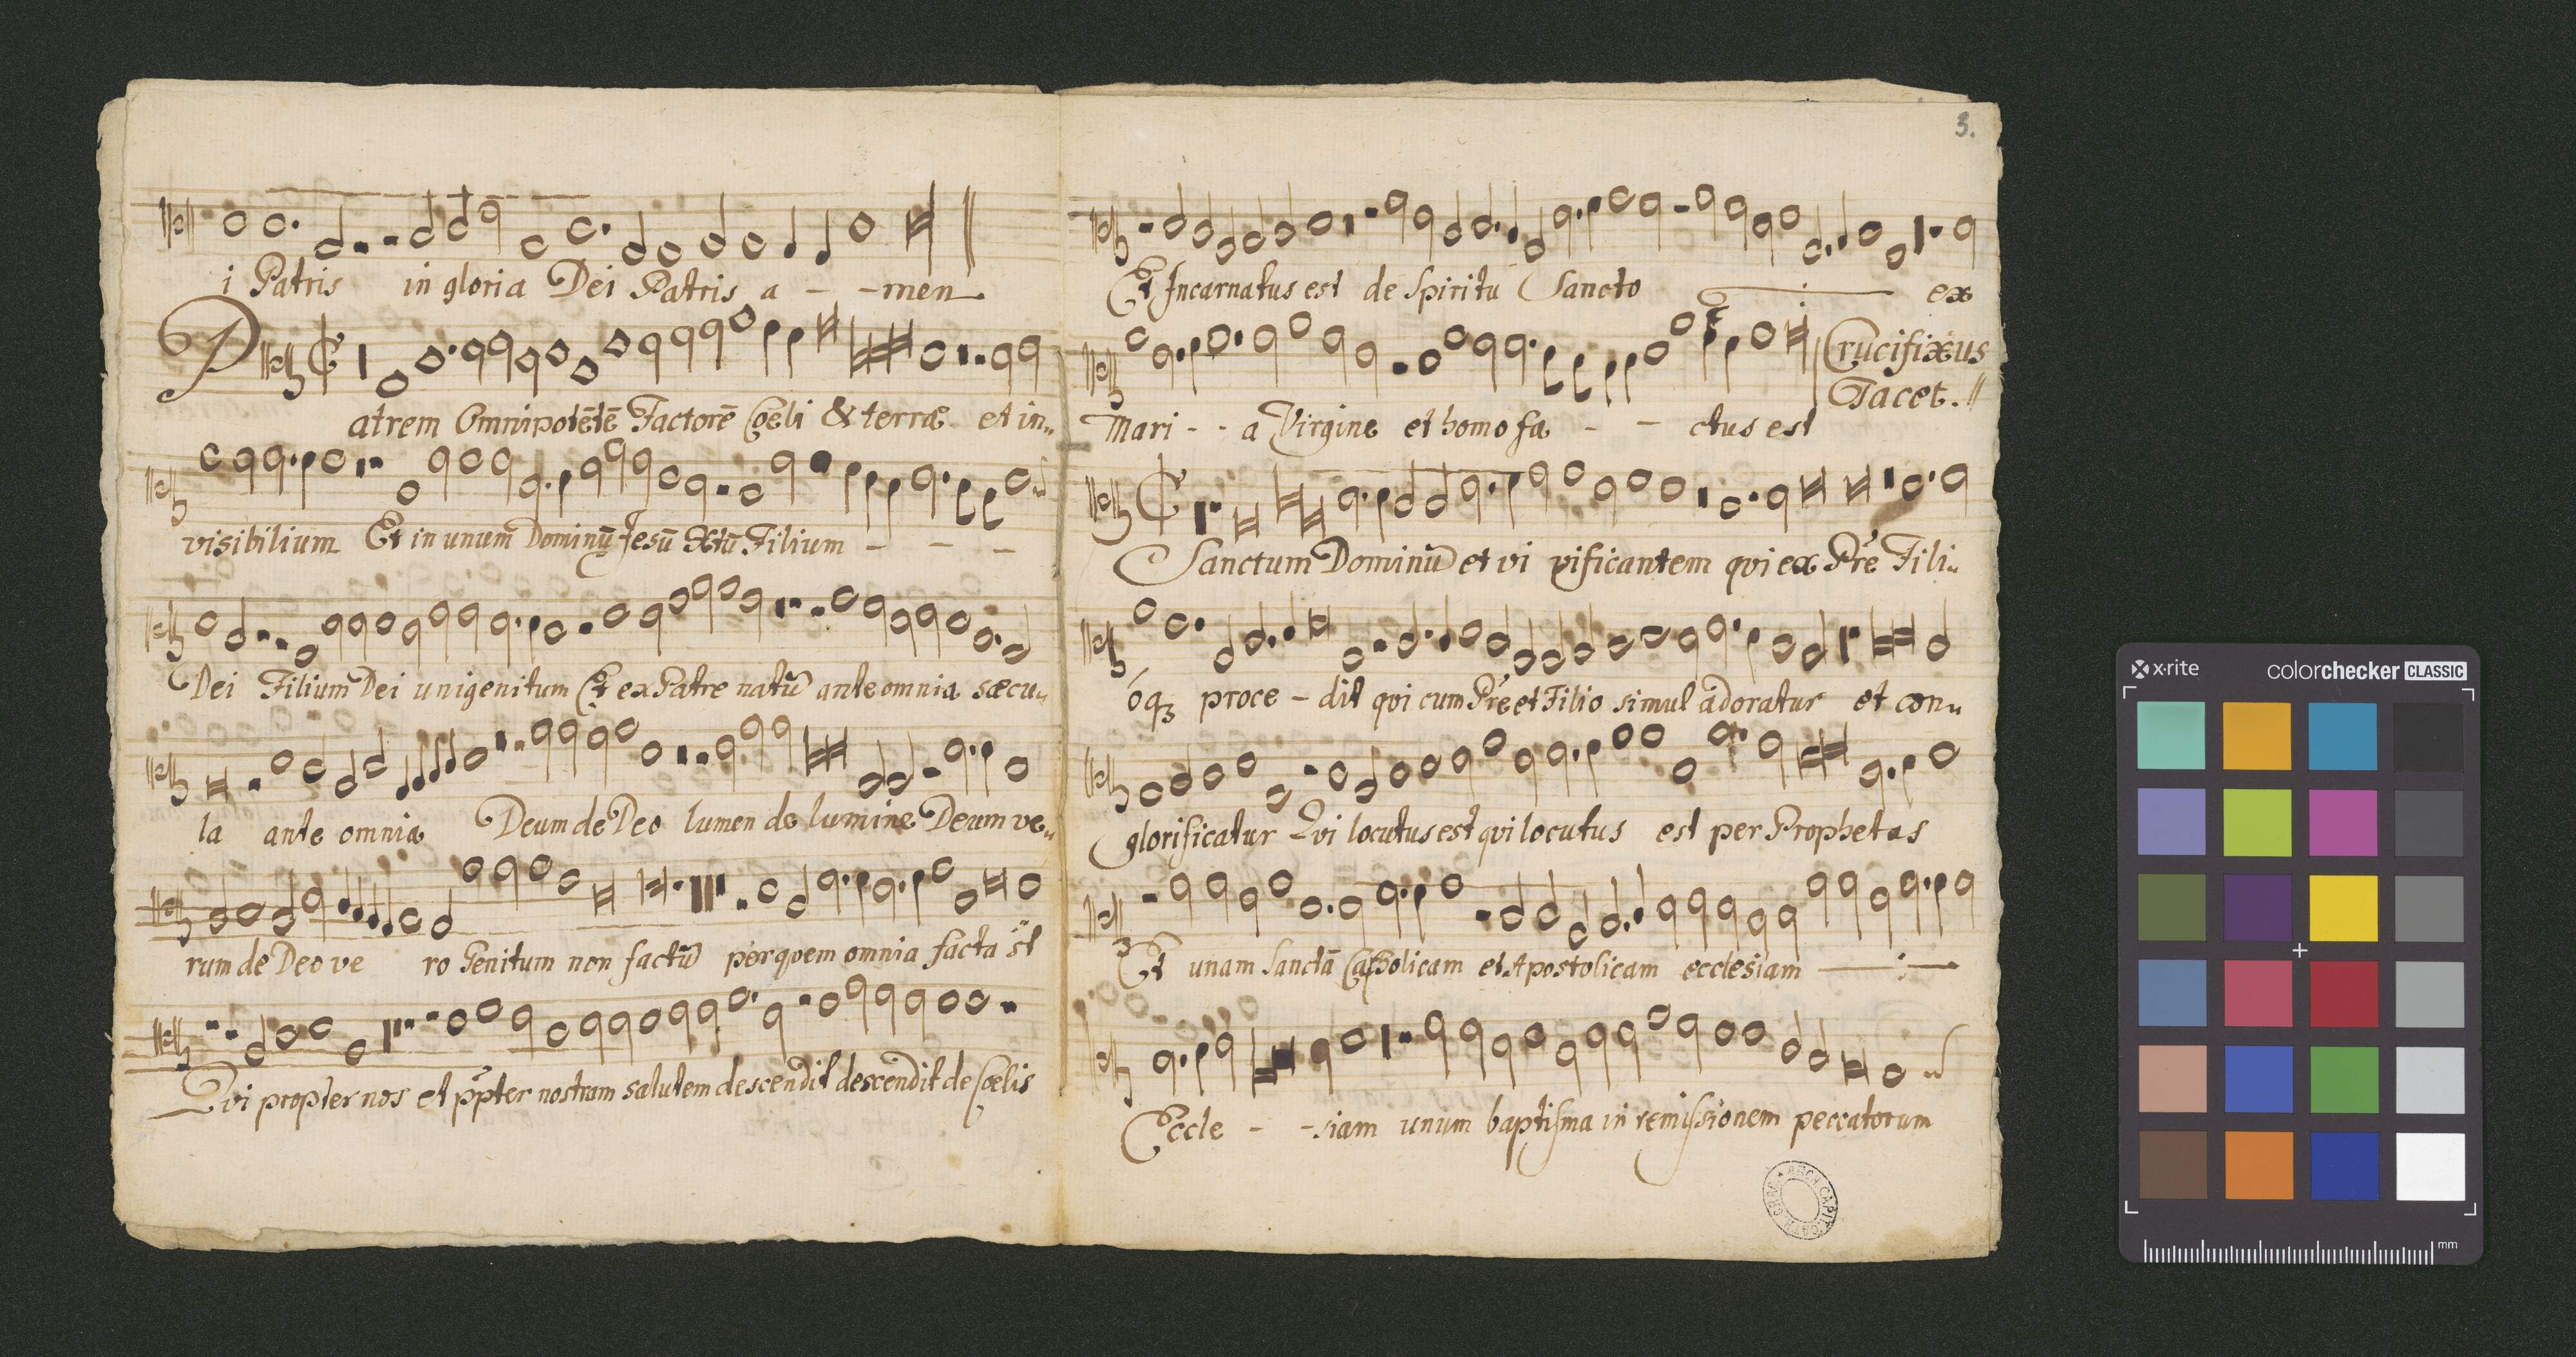 i Patris in gloria Dei Patris a - - men
Patrem Omnipotētē Factorē Coeli & terræ et in„
visibilium Et in unum Dominū Jesū Xtū Filium - - -
Dei Filium Dei unigenitum Et ex Patre natū ante omnia sæcu„
la ante omnia Deum de Deo lumen de lumine Deum ve„
rum de Deo ve ro Genitum non factū per quem omnia facta st
Qvi propter nos et ppter nostram salutem descendit descendit de Coelis
3.
Et Incarnatus est de Spiritu Sancto ex
Mari - - a Virgine et homo fa - - ctus est
Crucifixus
Tacet. //
Sanctum Dominū et vi vificantem qvi ex Pre Fili„
oq3 proce - dit qvi cum Pre et Filio simul adoratur et con„
glorificatur Qvi locutus est qvi locutus est per Prophetas
Et unam Sanctā Catholicam et Apostolicam ecclesiam
Eccle - - siam unum baptisma in remissionem peccatorum
ARCH. CAPIT.
x·rite colorchecker CLASSIC
mm